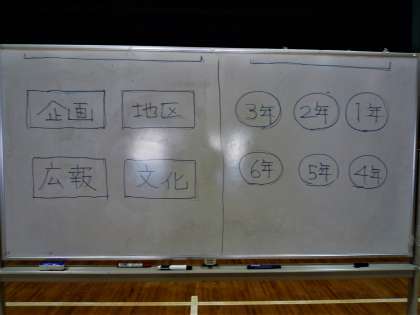 企画 地区
広報 文化
3年 2年 1年
6年 5年 4年